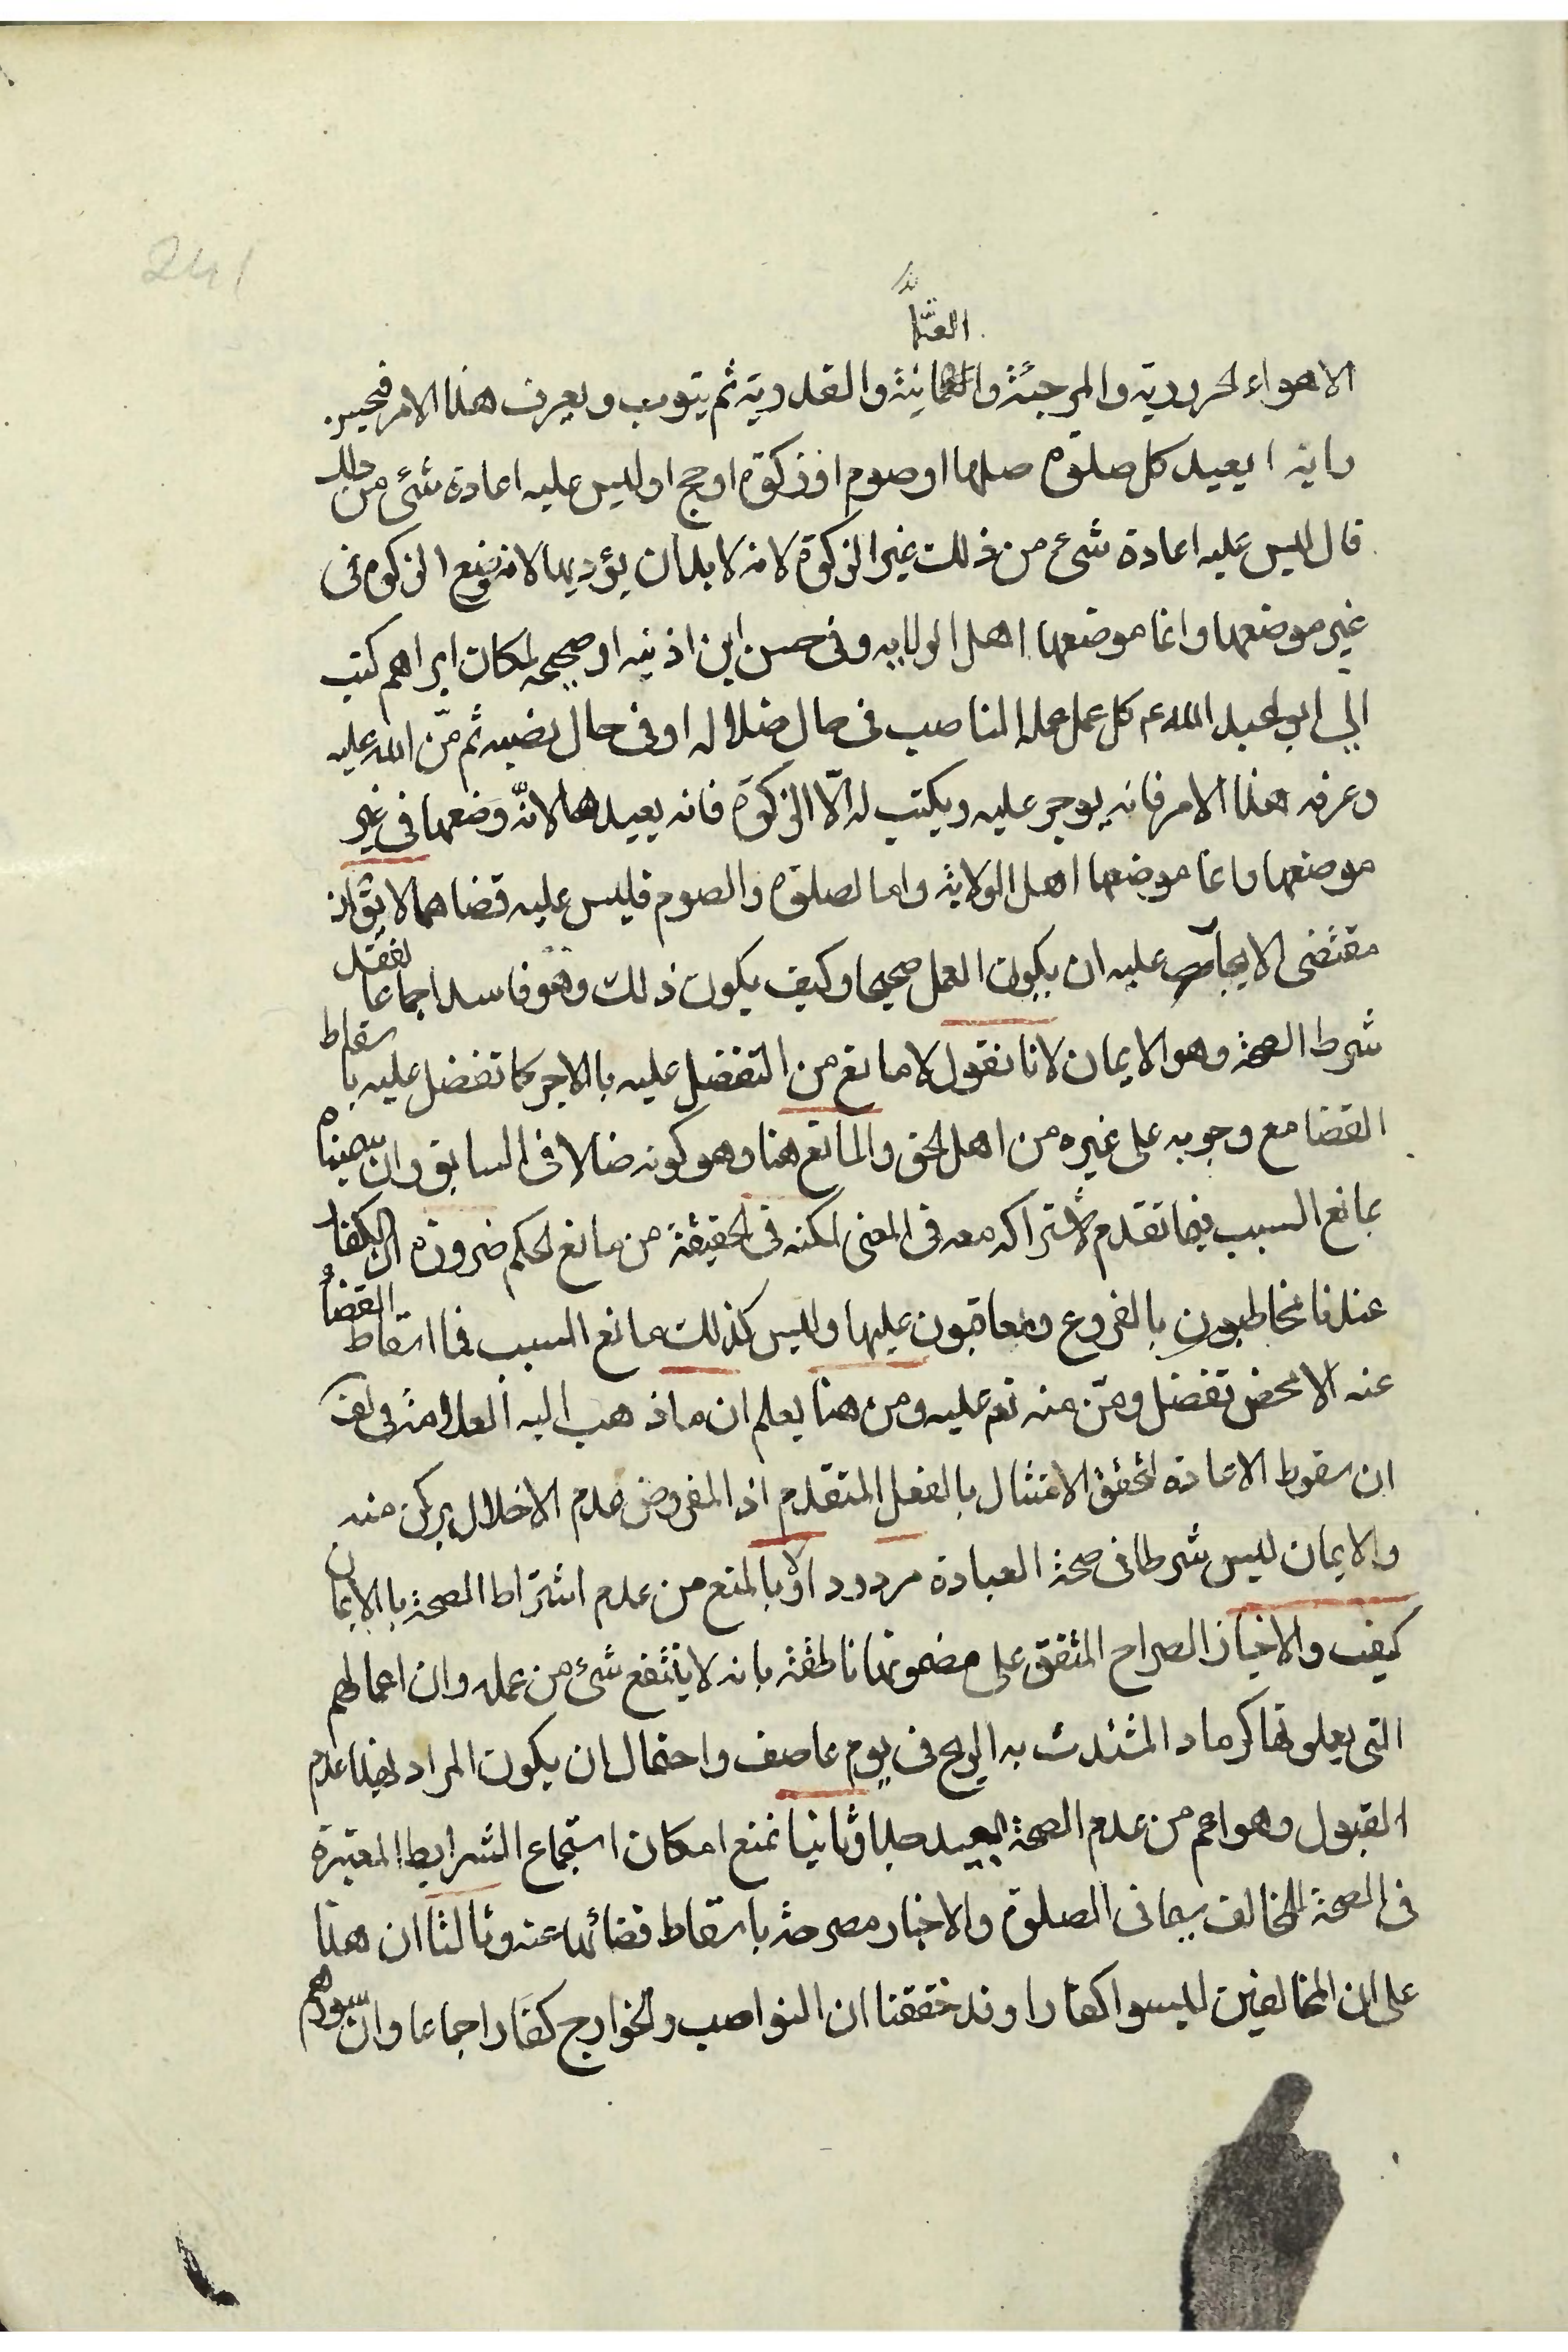 241
العثما
الاهواء الحرورية والمرجئة والعثمانية والقدرية ثم يتوب ويعرف هذا الامر فيحسن
رايه ا يعيد كل صلوة صلاها او صوم او زكوة او حج او ليس عليه اعادة شئ من ذلك
قال ليس عليه اعادة شئ من ذلك غير الزكوة لانه لا بد ان يؤديها لانه وضع الزكوة فى
غير موضعها وانما موضعها اهل الولايه وفى حسن ابن اذنيه او صحيحه لمكان ابراهم كتب
الي ابو عبد الله ع كل عمل عمله الناصب فى حال ضلاله او فى حال نصبه ثم منّ الله عليه
وعرفه هذا الامر فانه يوجر عليه ويكتب له الّا الزكوة فانه يعيدها لانّه وضعها فى غير
موضعها وانما موضعها اهل الولاية واما الصلوة والصوم فليس عليه قضاهما لا يق ان
مقتضى الايجار عليه ان يكون العمل صحيحا وكيف يكون ذلك وهو فاسد اجماعا لفقد
شرط الصحة وهو الايمان لانا نقول لا مانع من التفضل عليه بالاجر كما تفضل عليه باسقاط
القضا مع وجوبه على غيره من اهل الحق والمانع هنا وهو كونه ضالا فى السابق وان سميناه
بمانع السبب فيما تقدم لاشتراكه معه فى المعنى لكنه فى الحقيقة من مانع الحكم ضرورة ان الكفار
عندنا مخاطبون بالفروع ومعاقبون عليها وليس كذلك مانع السبب فما اسقاط القضاء
عنه الا محض تفضل ومنّ منه تع عليه ومن هنا يعلم ان ما ذهب اليه العلامة فى لف
ان سقوط الاعادة لتحقق الامتثال بالفعل المتقدم اذ المفروض عدم الاخلال بركن منه
والايمان ليس شرطا فى صحة العبادة مردود اولا بالمنع من عدم اشتراط الصحة بالايمان
كيف والاخبار الصراح المتفق على مضمونها ناطقة بانه لا ينتفع شئ من عمله وان اعمالهم
التى يعلونها كرماد اشتدت به الريح فى يوم عاصف واحتمال ان يكون المراد بهذا عدم
القبول وهو اعم من عدم الصحة بعيد جدا وثانيا نمنع امكان استجماع الشرايط المعتبرة
فى الصحة للمخالف سيما فى الصلوة والاخبار مصرحة باسقاط قضائها عنه وثالثا ان هذا
على ان المخالفين ليسوا كفارا وقد حققنا ان النواصب والخوارج كفار اجماعا وان سورهم